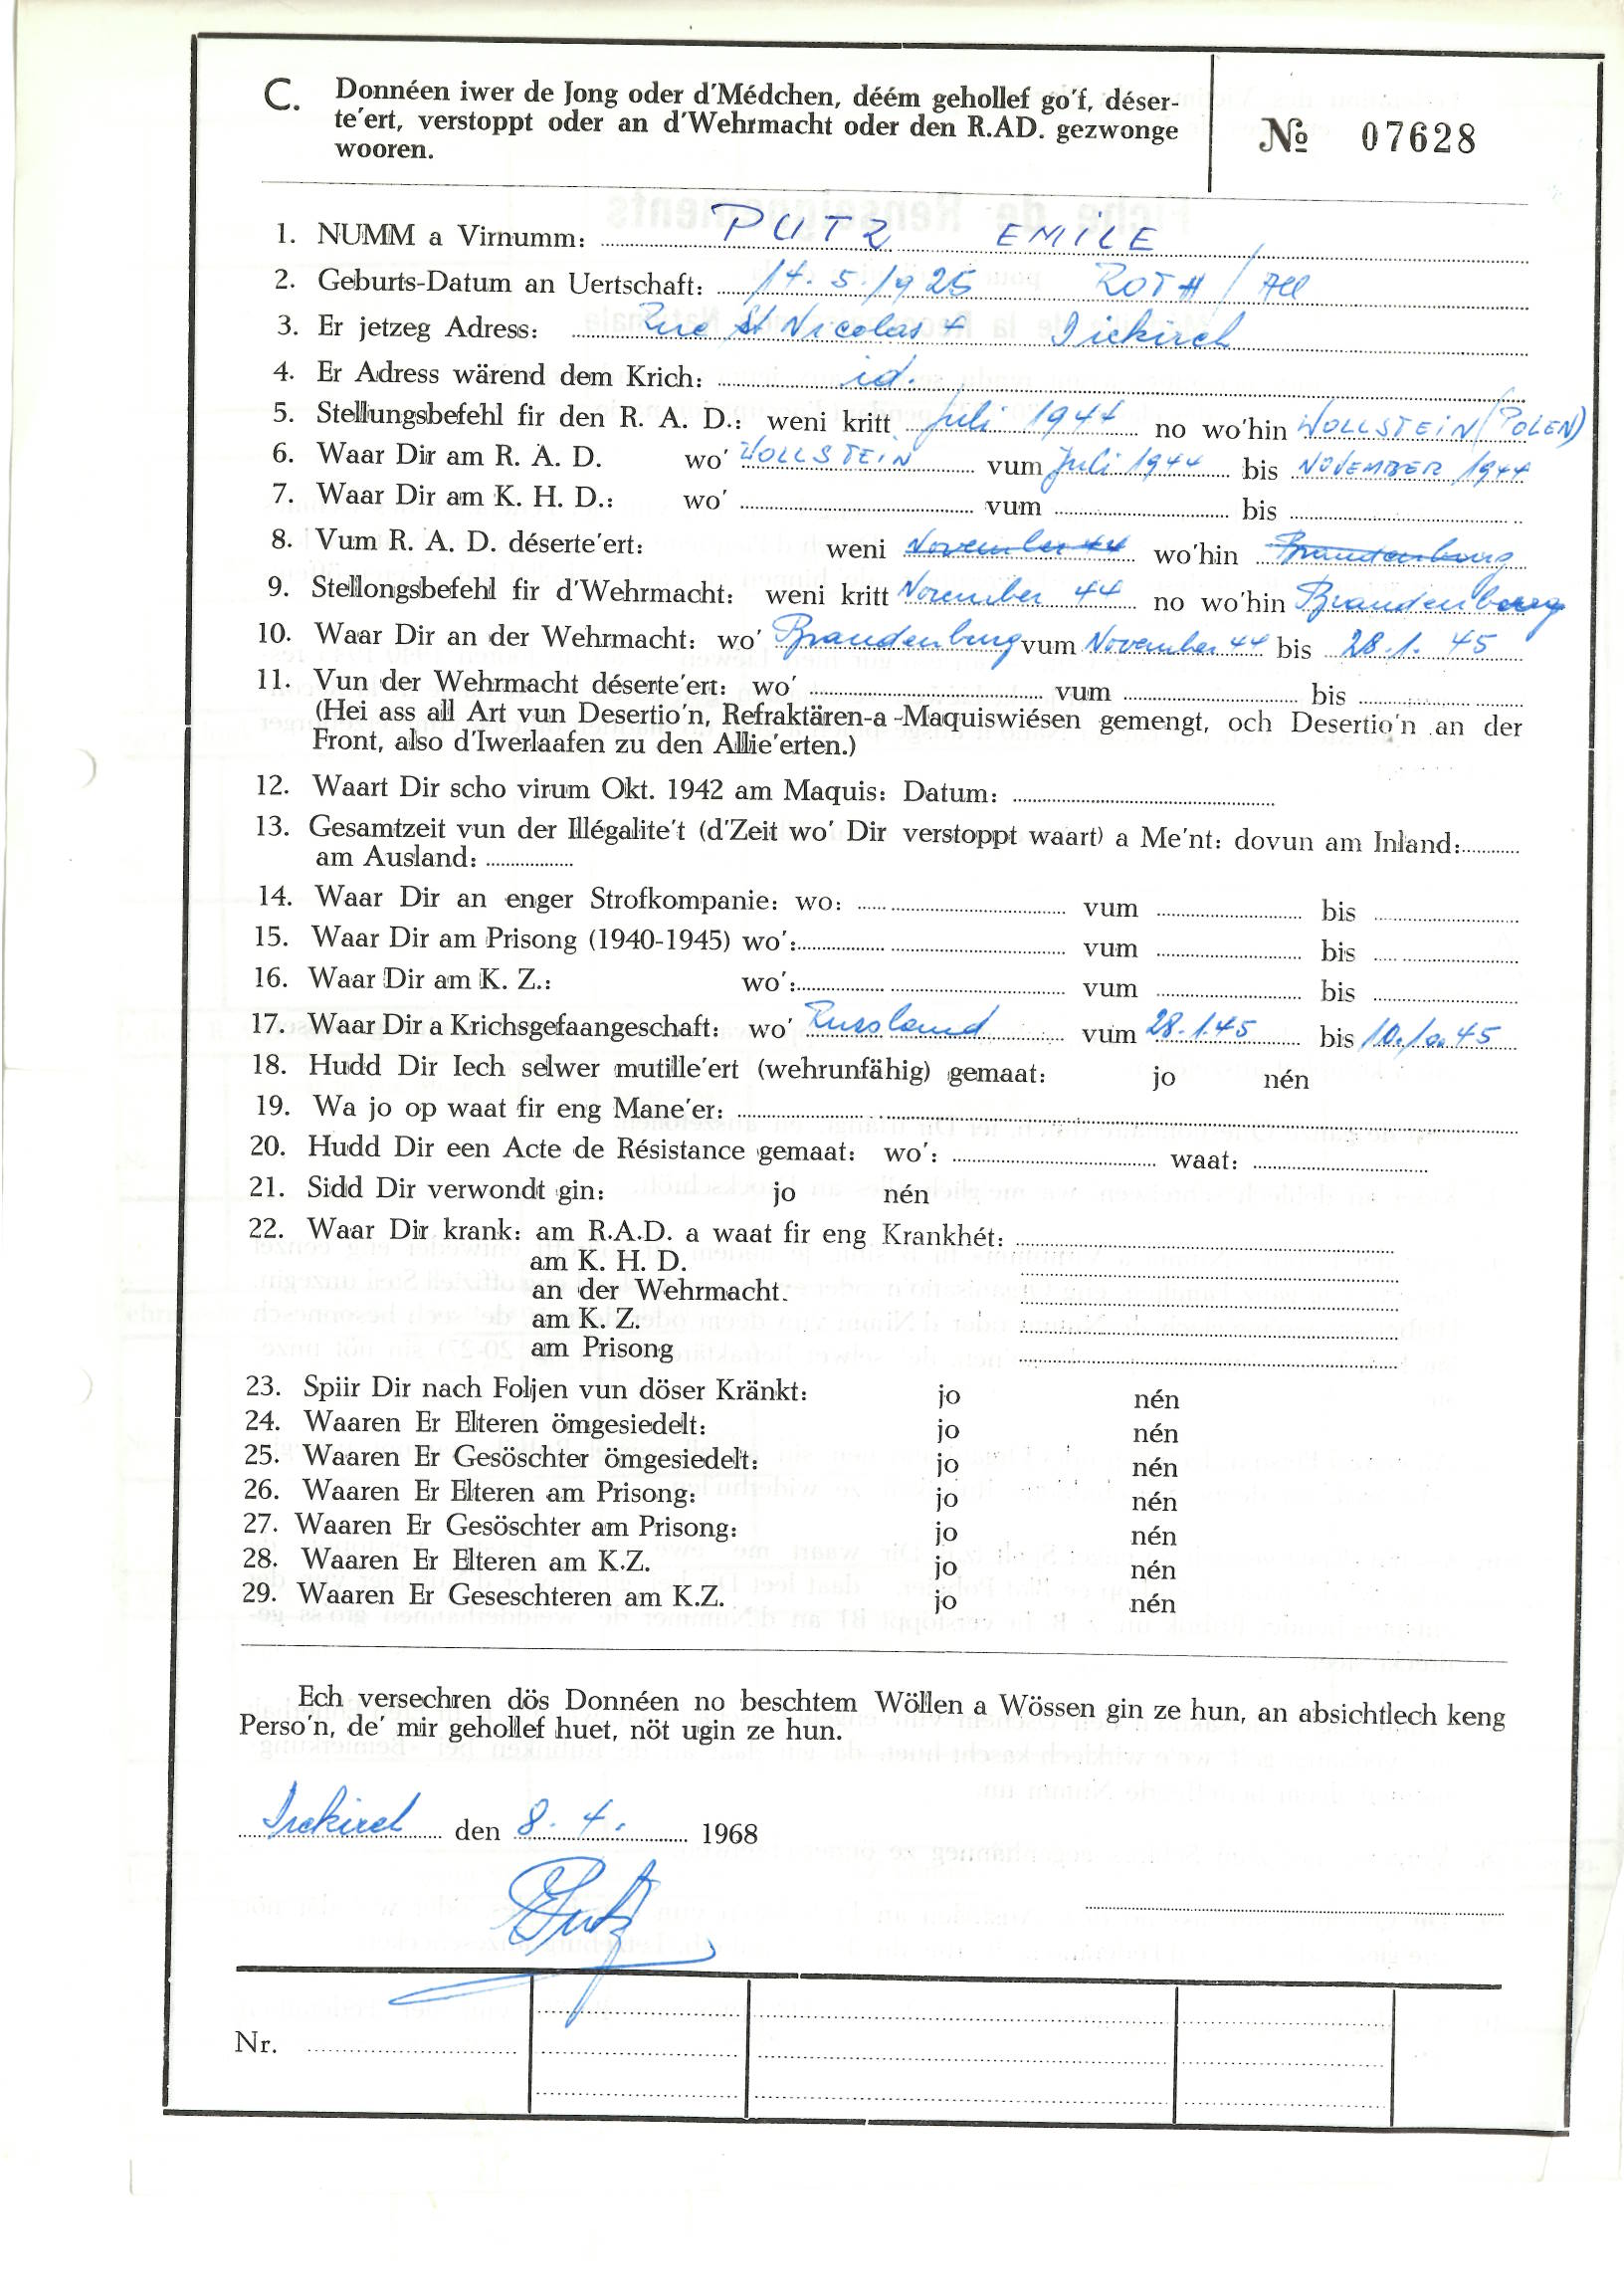 C. Donnéen iwer de Jong oder d'Médchen, déém gehollef go'f, déser-
te'ert, verstoppt oder an d'Wehrmacht oder den R.AD. gezwonge
wooren.
№ 07628
1. NUMM a Virnumm: PUTZ EMILE
2. Geburts-Datum an Uertschaft: 14.5.1925 ROTH / All
3. Er jetzeg Adress: Rue St Nicolas 4 Diekirch
4. Er Adress wärend dem Krich: id.
5. Stellungsbefehl fir den R. A. D.: weni kritt Juli 1944 no wo'hin WOLLSTEIN (POLEN)
6. Waar Dir am R. A. D. wo' WOLLSTEIN vum Juli 1944 bis NOVEMBER 1944
7. Waar Dir am K. H. D.: wo' vum bis
8. Vum R. A. D. déserte'ert: weni November 44 wo'hin Brandenburg
9. Stellongsbefehl fir d'Wehrmacht: weni kritt November 44 no wo'hin Brandenburg
10. Waar Dir an der Wehrmacht: wo' Brandenburg vum November 44 bis 28.1.45
11. Vun der Wehrmacht déserte'ert: wo' vum bis
(Hei ass all Art vun Desertio'n, Refraktären-a -Maquiswiésen gemengt, och Desertio'n an der
Front, also d'Iwerlaafen zu den Allie'erten.)
12. Waart Dir scho virum Okt. 1942 am Maquis: Datum:
13. Gesamtzeit vun der Illégalite't (d'Zeit wo' Dir verstoppt waart) a Me'nt: dovun am Inland:
am Ausland:
14. Waar Dir an enger Strofkompanie: wo: vum bis
15. Waar Dir am Prisong (1940-1945) wo': vum bis
16. Waar Dir am K. Z.: wo': vum bis
17. Waar Dir a Krichsgefaangeschaft: wo' Russland vum 28.1.45 bis 10.10.45
18. Hudd Dir Iech selwer mutille'ert (wehrunfähig) gemaat: jo nén
19. Wa jo op waat fir eng Mane'er:
20. Hudd Dir een Acte de Résistance gemaat: wo': waat:
21. Sidd Dir verwondt gin: jo nén
22. Waar Dir krank: am R.A.D. a waat fir eng Krankhét:
am K. H. D.
an der Wehrmacht.
am K. Z.
am Prisong
23. Spiir Dir nach Foljen vun döser Kränkt: jo nén
24. Waaren Er Elteren ömgesiedelt: jo nén
25. Waaren Er Gesöschter ömgesiedelt: jo nén
26. Waaren Er Elteren am Prisong: jo nén
27. Waaren Er Gesöschter am Prisong: jo nén
28. Waaren Er Elteren am K.Z. jo nén
29. Waaren Er Geseschteren am K.Z. jo nén
Ech versechren dös Donnéen no beschtem Wöllen a Wössen gin ze hun, an absichtlech keng
Perso'n, de' mir gehollef huet, nöt ugin ze hun.
Diekirch den 8.4. 1968
EPutz
Nr.